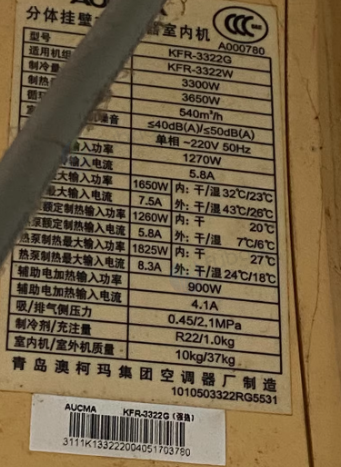 分体挂壁 室内机
A000780
型号 KFR-3322G
适用机组 KFR-3322W
制冷量 3300W
制热 3650W
循环 540m³/h
噪音 ≤40dB(A)/≤50dB(A)
单相 ~220V 50Hz
输入功率 1270W
输入电流 5.8A
大输入功率 1650W 内:干/湿 32℃/23℃
大输入电流 7.5A 外:干/湿 43℃/26℃
泵额定制热输入功率 1260W 内:干 20℃
热泵额定制热输入电流 5.8A 外:干/湿 7℃/6℃
热泵制热最大输入功率 1825W 内:干 27℃
热泵制热最大输入电流 8.3A 外:干/湿 24℃/18℃
辅助电加热输入功率 900W
辅助电加热输入电流 4.1A
吸/排气侧压力 0.45/2.1MPa
制冷剂/充注量 R22/1.0kg
室内机/室外机质量 10kg/37kg
青岛澳柯玛集团空调器厂制造
1010503322RG5531
AUCMA KFR-3322G(强热)
3111K133222004051703780